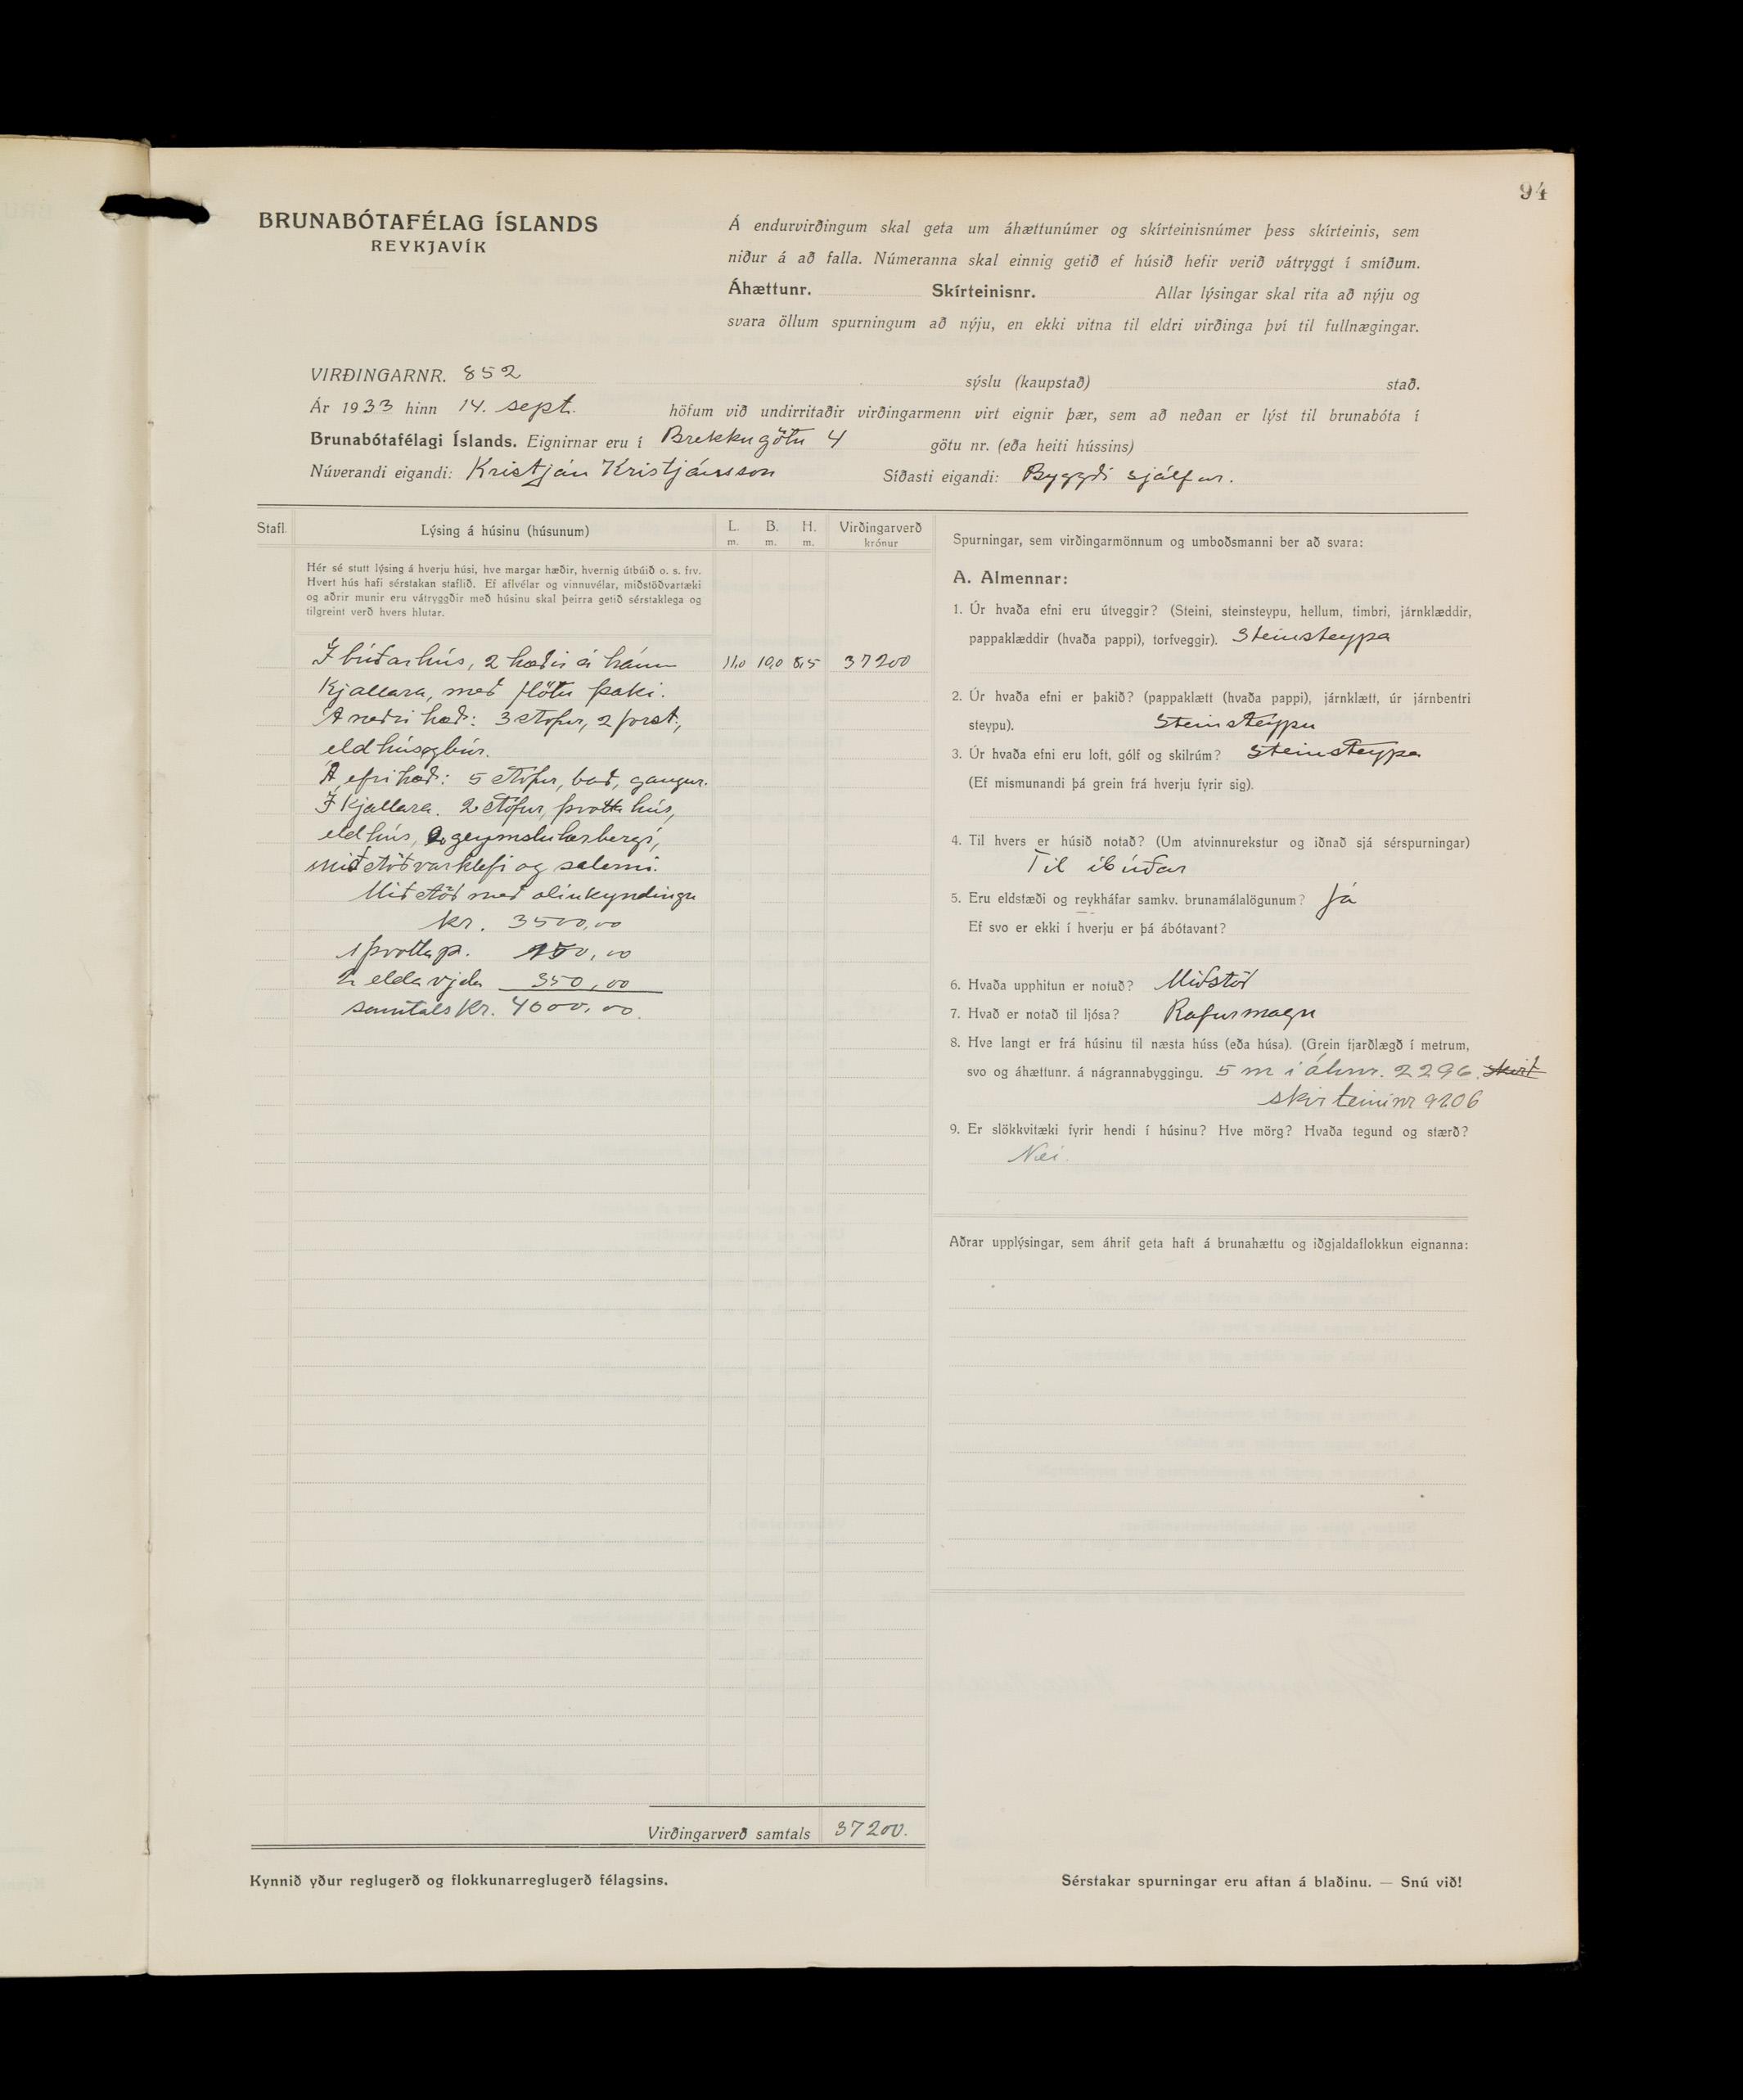 94
BRUNABÓTAFÉLAG ÍSLANDS
REYKJAVÍK
Á endurvirðingum skal geta um áhættunúmer og skírteinisnúmer þess skírteinis, sem
niður á að falla. Númeranna skal einnig getið ef húsið hefir verið vátryggt í smíðum.
Áhættunr. Skírteinisnr. Allar lýsingar skal rita að nýju og
svara öllum spurningum að nýju, en ekki vitna til eldri virðinga því til fullnægingar.
VIRÐINGARNR. 852 sýslu (kaupstað) stað.
Ár 1933 hinn 14. sept. höfum við undirritaðir virðingarmenn virt eignir þær, sem að neðan er lýst til brunabóta í
Brunabótafélagi Íslands. Eignirnar eru í Brekkugötu 4 götu nr. (eða heiti hússins)
Núverandi eigandi: Kristján Kristjánsson Síðasti eigandi: Byggði sjálfur.
Stafl. Lýsing á húsinu (húsunum) L. m. B. m. H. m. Virðingarverð krónur
Hér sé stutt lýsing á hverju húsi, hve margar hæðir, hvernig útbúið o. s. frv.
Hvert hús hafi sérstakan staflið. Ef aflvélar og vinnuvélar, miðstöðvartæki
og aðrir munir eru vátryggðir með húsinu skal þeirra getið sérstaklega og
tilgreint verð hvers hlutar.
Íbúðarhús, 2 hæðir á háum 11,0 10,0 8,5 37200
Kjallara, með flötu þaki.
Á neðri hæð: 3 stofur, 2 forst.,
eldhús og búr.
Á efri hæð: 5 stofur, bað, gangur.
Í kjallara. 2 stofur, þvottahús,
eldhús, 2 geymsluherbergi,
miðstöðvarklefi og salerni.
Miðstöð með olíukyndingu
kr. 3500,00
1 þvottap. 150,00
2 eldavjela 350,00
samtals Kr. 4000,00.
Virðingarverð samtals 37200.
Spurningar, sem virðingarmönnum og umboðsmanni ber að svara:
A. Almennar:
1. Úr hvaða efni eru útveggir? (Steini, steinsteypu, hellum, timbri, járnklæddir,
pappaklæddir (hvaða pappi), torfveggir). Steinsteypa
2. Úr hvaða efni er þakið? (pappaklætt (hvaða pappi), járnklætt, úr járnbentri
steypu). Steinsteypu
3. Úr hvaða efni eru loft, gólf og skilrúm? Steinsteypa
(Ef mismunandi þá grein frá hverju fyrir sig).
4. Til hvers er húsið notað? (Um atvinnurekstur og iðnað sjá sérspurningar)
Til íbúðar
5. Eru eldstæði og reykháfar samkv. brunamálalögunum? Já
Ef svo er ekki í hverju er þá ábótavant?
6. Hvaða upphitun er notuð? Miðstöð
7. Hvað er notað til ljósa? Rafurmagn
8. Hve langt er frá húsinu til næsta húss (eða húsa). (Grein fjarðlægð í metrum,
svo og áhættunr. á nágrannabyggingu. 5 m í áhnr. 2296. skírt
skirteininr 9206
9. Er slökkvitæki fyrir hendi í húsinu? Hve mörg? Hvaða tegund og stærð?
Nei.
Aðrar upplýsingar, sem áhrif geta haft á brunahættu og iðgjaldaflokkun eignanna:
Kynnið yður reglugerð og flokkunarreglugerð félagsins.
Sérstakar spurningar eru aftan á blaðinu. — Snú við!